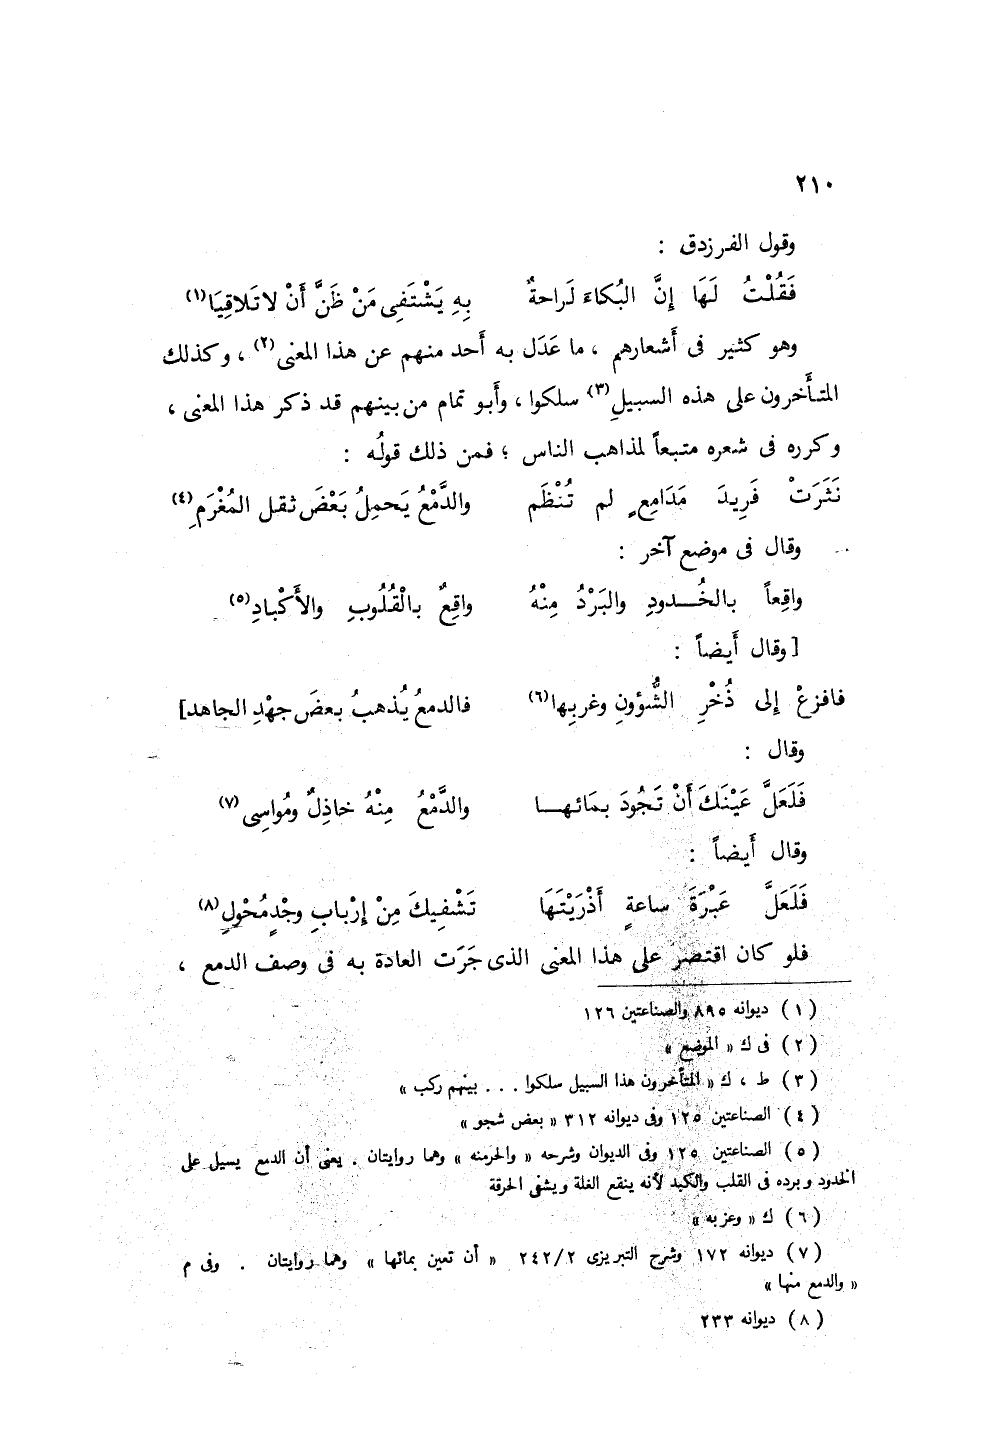 ٢١٠
وقول الفرزدق :
فَقُلْتُ لَهَا إِنَّ البُكاءَ لَراحةٌ بِهِ يَشْتَفِى مَنْ ظَنَّ أَنْ لا تَلاقِيَا(١)
وهو كثير فى أشعارهم ، ما عَدَل به أحد منهم عن هذا المعنى(٢) ، وكذلك
المتأخرون على هذه السبيلِ(٣) سلكوا ، وأبو تمام من بينهم قد ذكر هذا المعنى ،
وكرره فى شعره متبعاً لمذاهب الناس ؛ فمن ذلك قولُه :
نَثَرَتْ فَرِيدَ مَدَامِعٍ لم تُنْظَم والدَّمْعُ يَحمِلُ بَعْضَ ثقل المُغْرَمِ(٤)
وقال فى موضع آخر :
واقِعاً بالخُدودِ والبَرْدُ مِنْهُ واقِعٌ بالْقُلُوبِ والأَكْبادِ(٥)
[ وقال أَيضاً :
فافزعْ إِلى ذُخْرِ الشُّؤونِ وغربِها(٦) فالدمعُ يُذهبُ بعضَ جهْدِ الجاهد]
وقال :
فَلَعَلَّ عَيْنَكَ أَنْ تَجُودَ بمَائها والدَّمْعُ مِنْهُ خاذِلٌ ومُواسِى(٧)
وقال أَيضاً :
فَلَعَلَّ عَبْرَةَ ساعةٍ أَذْرَيْتَهَا تَشْفِيكَ مِنْ إِرْبابِ وجْدٍ مُحْوِلِ(٨)
فلو كان اقتصر على هذا المعنى الذى جَرَت العادة به فى وصف الدمع ،
( ١ ) ديوانه ٨٩٥ والصناعتين ١٢٦
( ٢ ) فى ك « الموضع »
( ٣ ) ط ، ك « المتأخرون هذا السبيل سلكوا . . . بينهم ركب »
( ٤ ) الصناعتين ١٢٥ وفى ديوانه ٣١٢ « بعض شجو »
( ٥ ) الصناعتين ١٢٥ وفى الديوان وشرحه « والحرمنه » وهما روايتان . يعنى أن الدمع يسيل على
الخدود وبرده فى القلب والكبد لأنه ينقع الغلة ويشفى الحرقة
( ٦ ) ك « وعزبه »
( ٧ ) ديوانه ١٧٢ وشرح التبريزى ٢/٢٤٢ « أن تعين بمائها » وهما روايتان . وفى م
« والدمع منها »
( ٨ ) ديوانه ٢٣٣